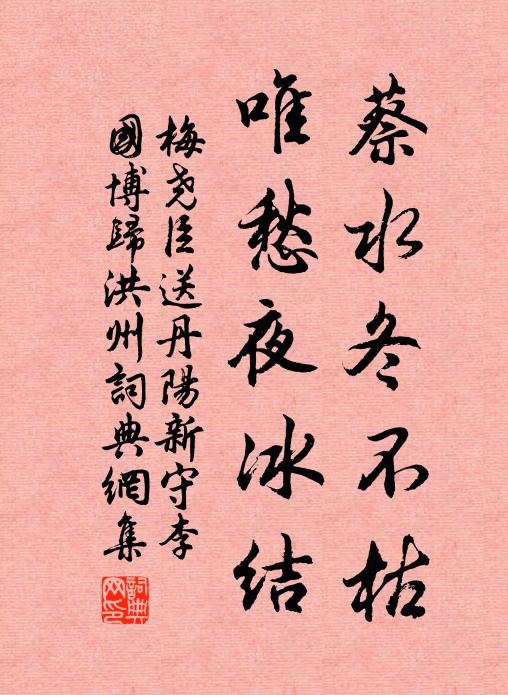 蔡水冬不枯
唯愁夜冰結
梅堯臣送丹陽新守李
國博歸洪州詞典網集
詞典網印